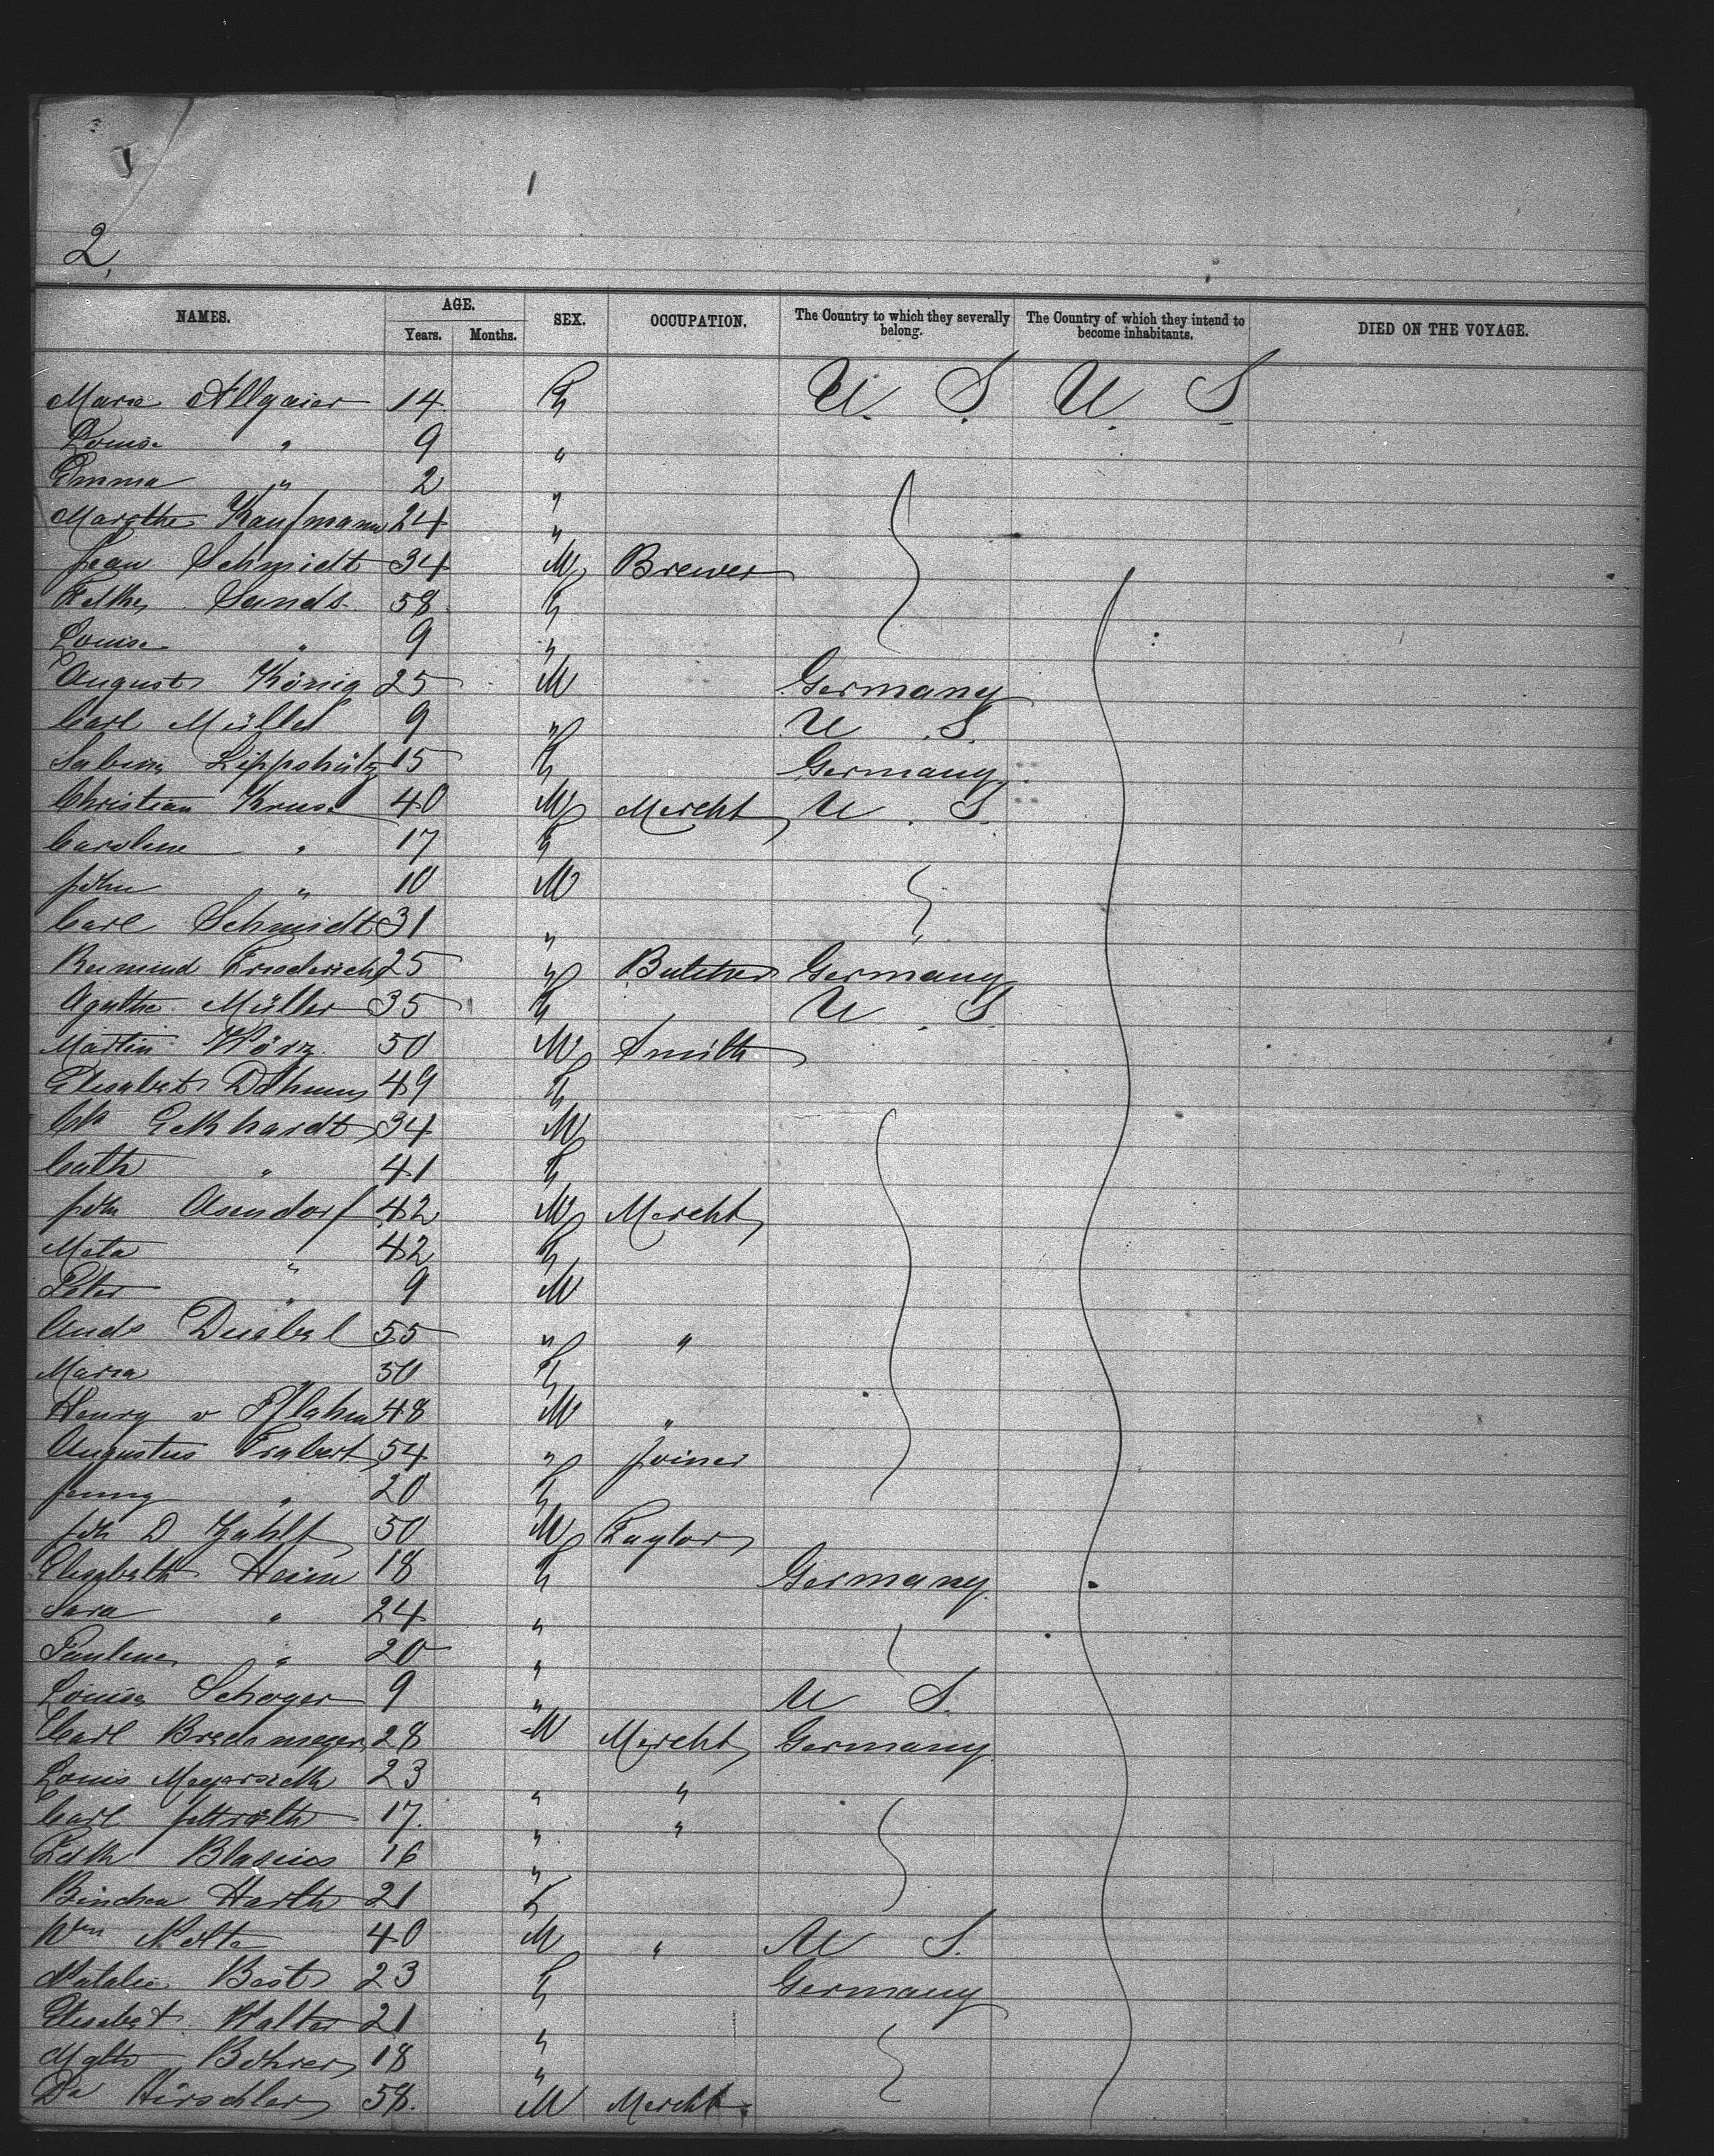 1
2,
NAMES. AGE. Years. Months. SEX. OCCUPATION. The Country to which they severally belong. The Country of which they intend to become inhabitants. DIED ON THE VOYAGE.
Maria Allgaier 14 F U. S. U. S.
Louise " 9 "
Emma " 2 "
Marthe Kaufmann 24 "
Jean Schmidt 34 M Brewer
Sands 58 F
Louise " 9 "
August König 25 M Germany
Carl Müller 9 " U. S.
Sabina Lippshütz 15 F Germany
Christian Kruse 40 M Mercht U. S.
Caroline " 17 F
John " 10 M
Carl Schmidt 31 "
Friederich 25 " Butcher Germany
Agathe Müller 35 F U. S.
Martin Wörz 50 M Smith
Elisabet 49 F
Ch Eckhardt 34 M
Cath " 41 F
Joh Asendorf 42 M Mercht
Meta " 42 F
Peter " 9 M
Andr 55 " "
Maria " 50 F
Henry v 48 M "
Augustus Trabert 54 " Joiner
Jenny " 20 F
Joh D 50 M Taylor
Elisabeth Heim 18 F Germany
Sara " 24 "
Pauline " 20 "
Louise Schoger 9 " U S.
Carl 28 M Mercht Germany
Louis 23 " "
Carl 17 " "
Blasius 16 "
Binchen Harth 21 F
Wm Nolte 40 M " U S.
Natalie Best 23 F Germany
Elisabet Walter 21 "
Mgth Bohrer 18 "
Hirschler 58. M Mercht.